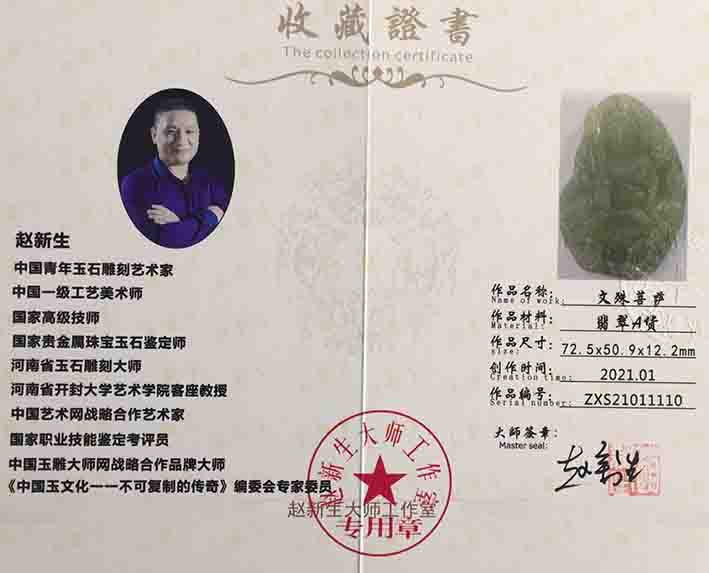 收藏證書
The collection certificate
赵新生
中国青年玉石雕刻艺术家
中国一级工艺美术师
国家高级技师
国家贵金属珠宝玉石鉴定师
河南省玉石雕刻大师
河南省开封大学艺术学院客座教授
中国艺术网战略合作艺术家
国家职业技能鉴定考评员
中国玉雕大师网战略合作品牌大师
《中国玉文化一一不可复制的传奇》编委会专家委员
作品名称: 文殊菩萨
Name of work:
作品材料: 翡翠A货
Material:
作品尺寸: 72.5x50.9x12.2mm
size:
创作时间: 2021.01
Creation time:
作品编号: ZXS21011110
Serial number:
大師签章:
Master seal:
赵新生
赵新生大师工作室
专用章
赵新生大师工作室